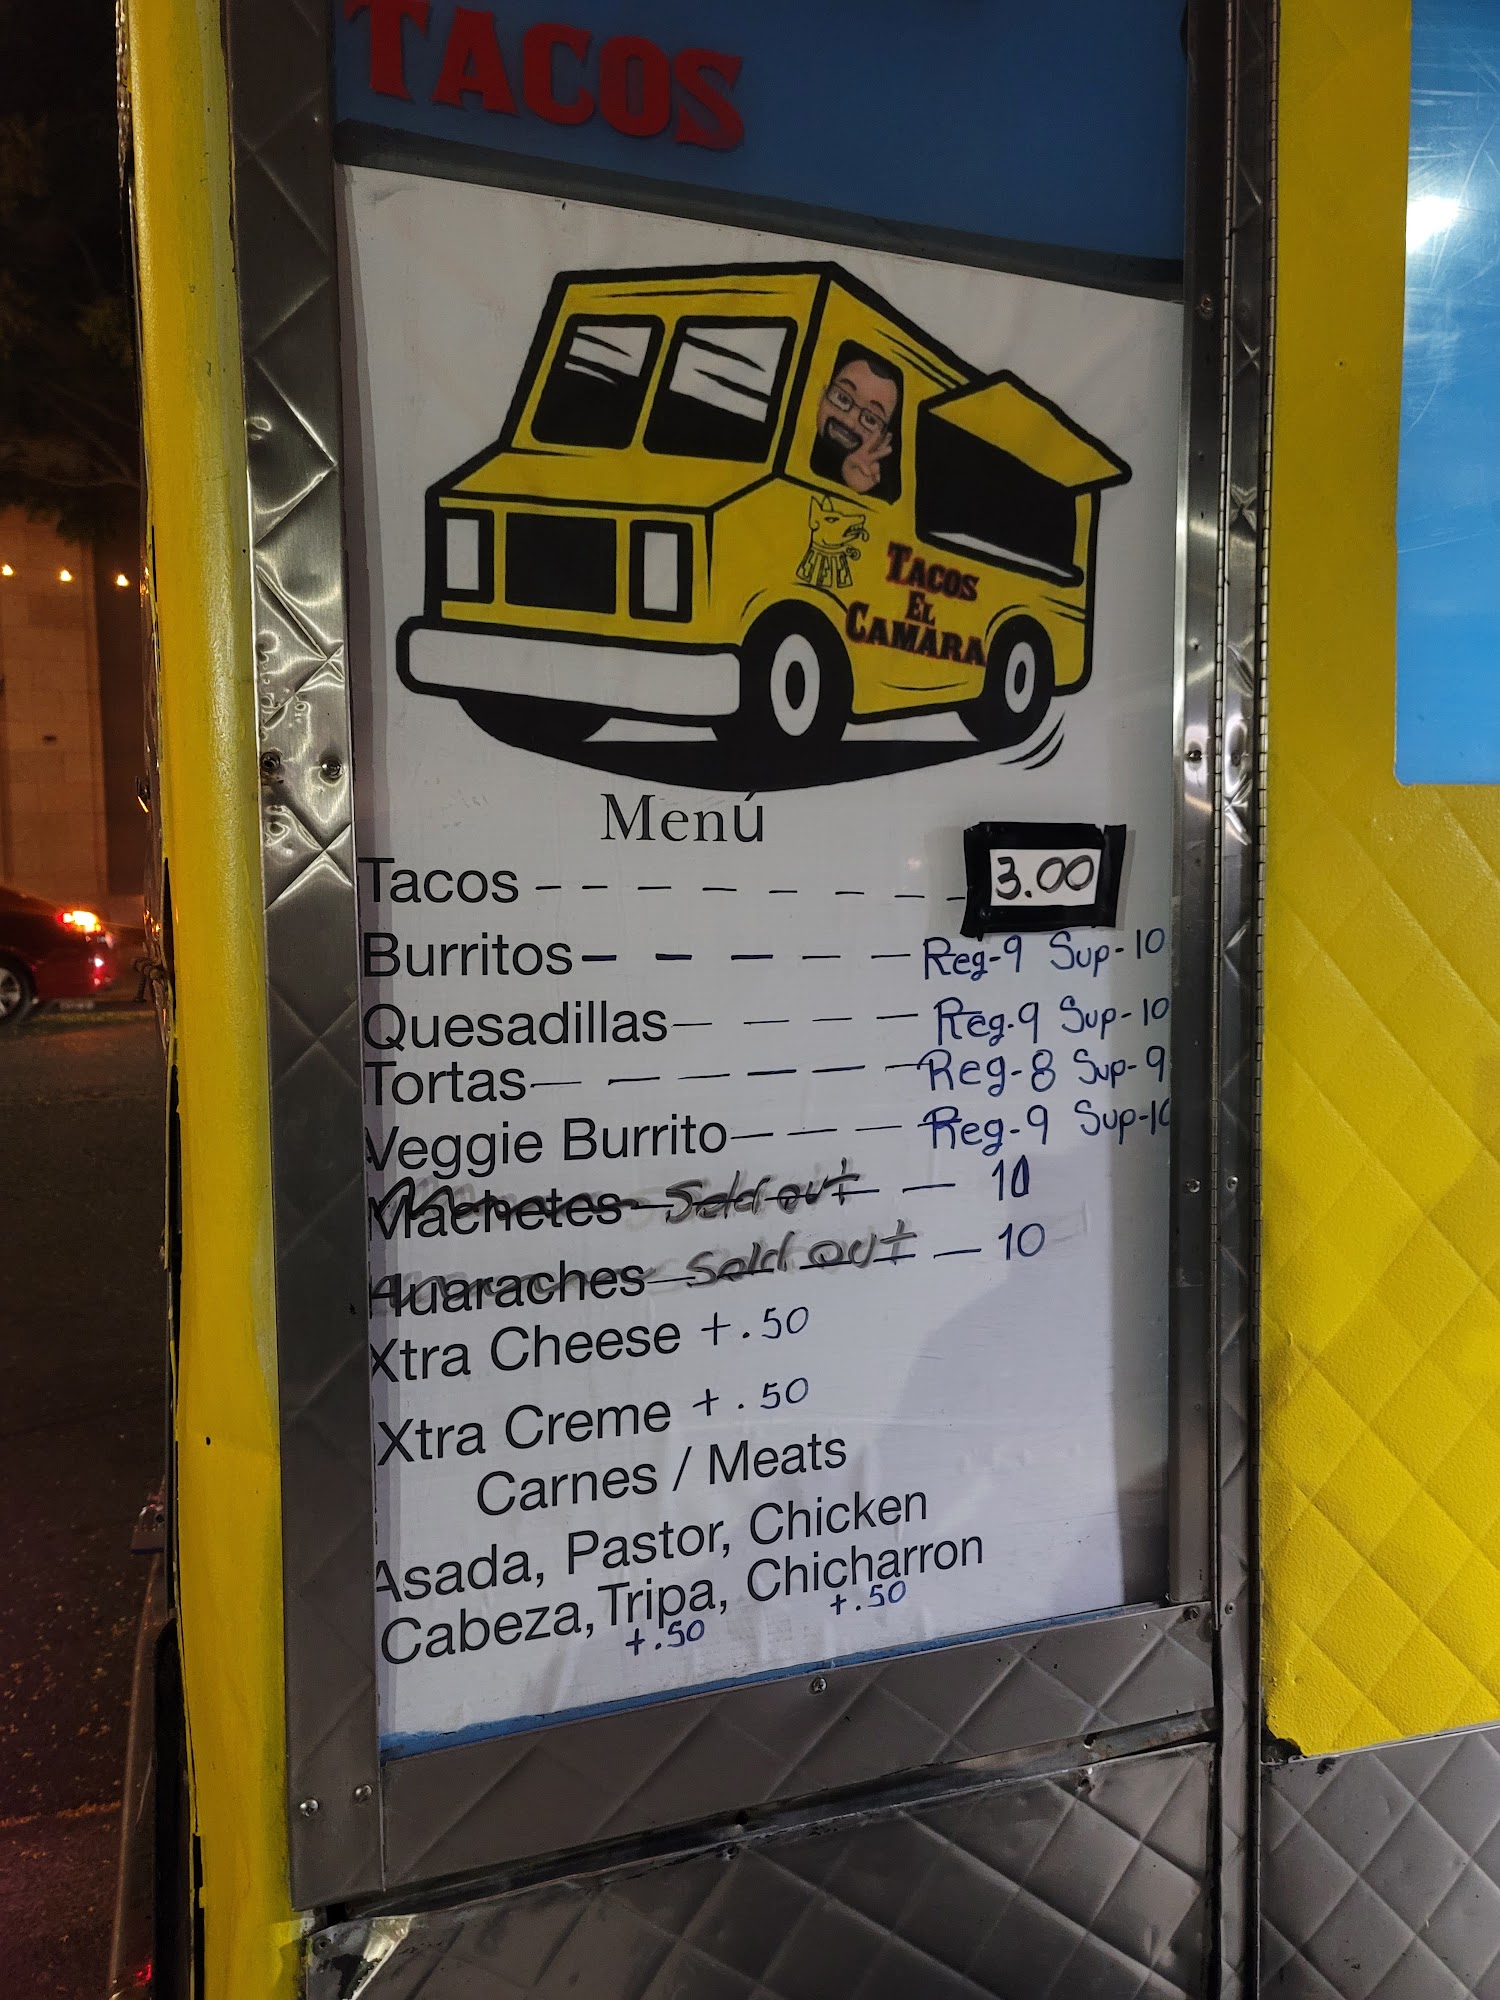 TACOS
TACOS
EL
CAMARA
Menú
Tacos - - - - - - - 3.00
Burritos - - - - - Reg-9 Sup-10
Quesadillas - - - - Reg-9 Sup-10
Tortas - - - - - - Reg-8 Sup-9
Veggie Burrito - - - - Reg-9 Sup-10
Machetes - Sold out - - 10
Huaraches - Sold out - - 10
Xtra Cheese +.50
Xtra Creme +.50
Carnes / Meats
Asada, Pastor, Chicken
Cabeza, Tripa, Chicharron
+.50 +.50